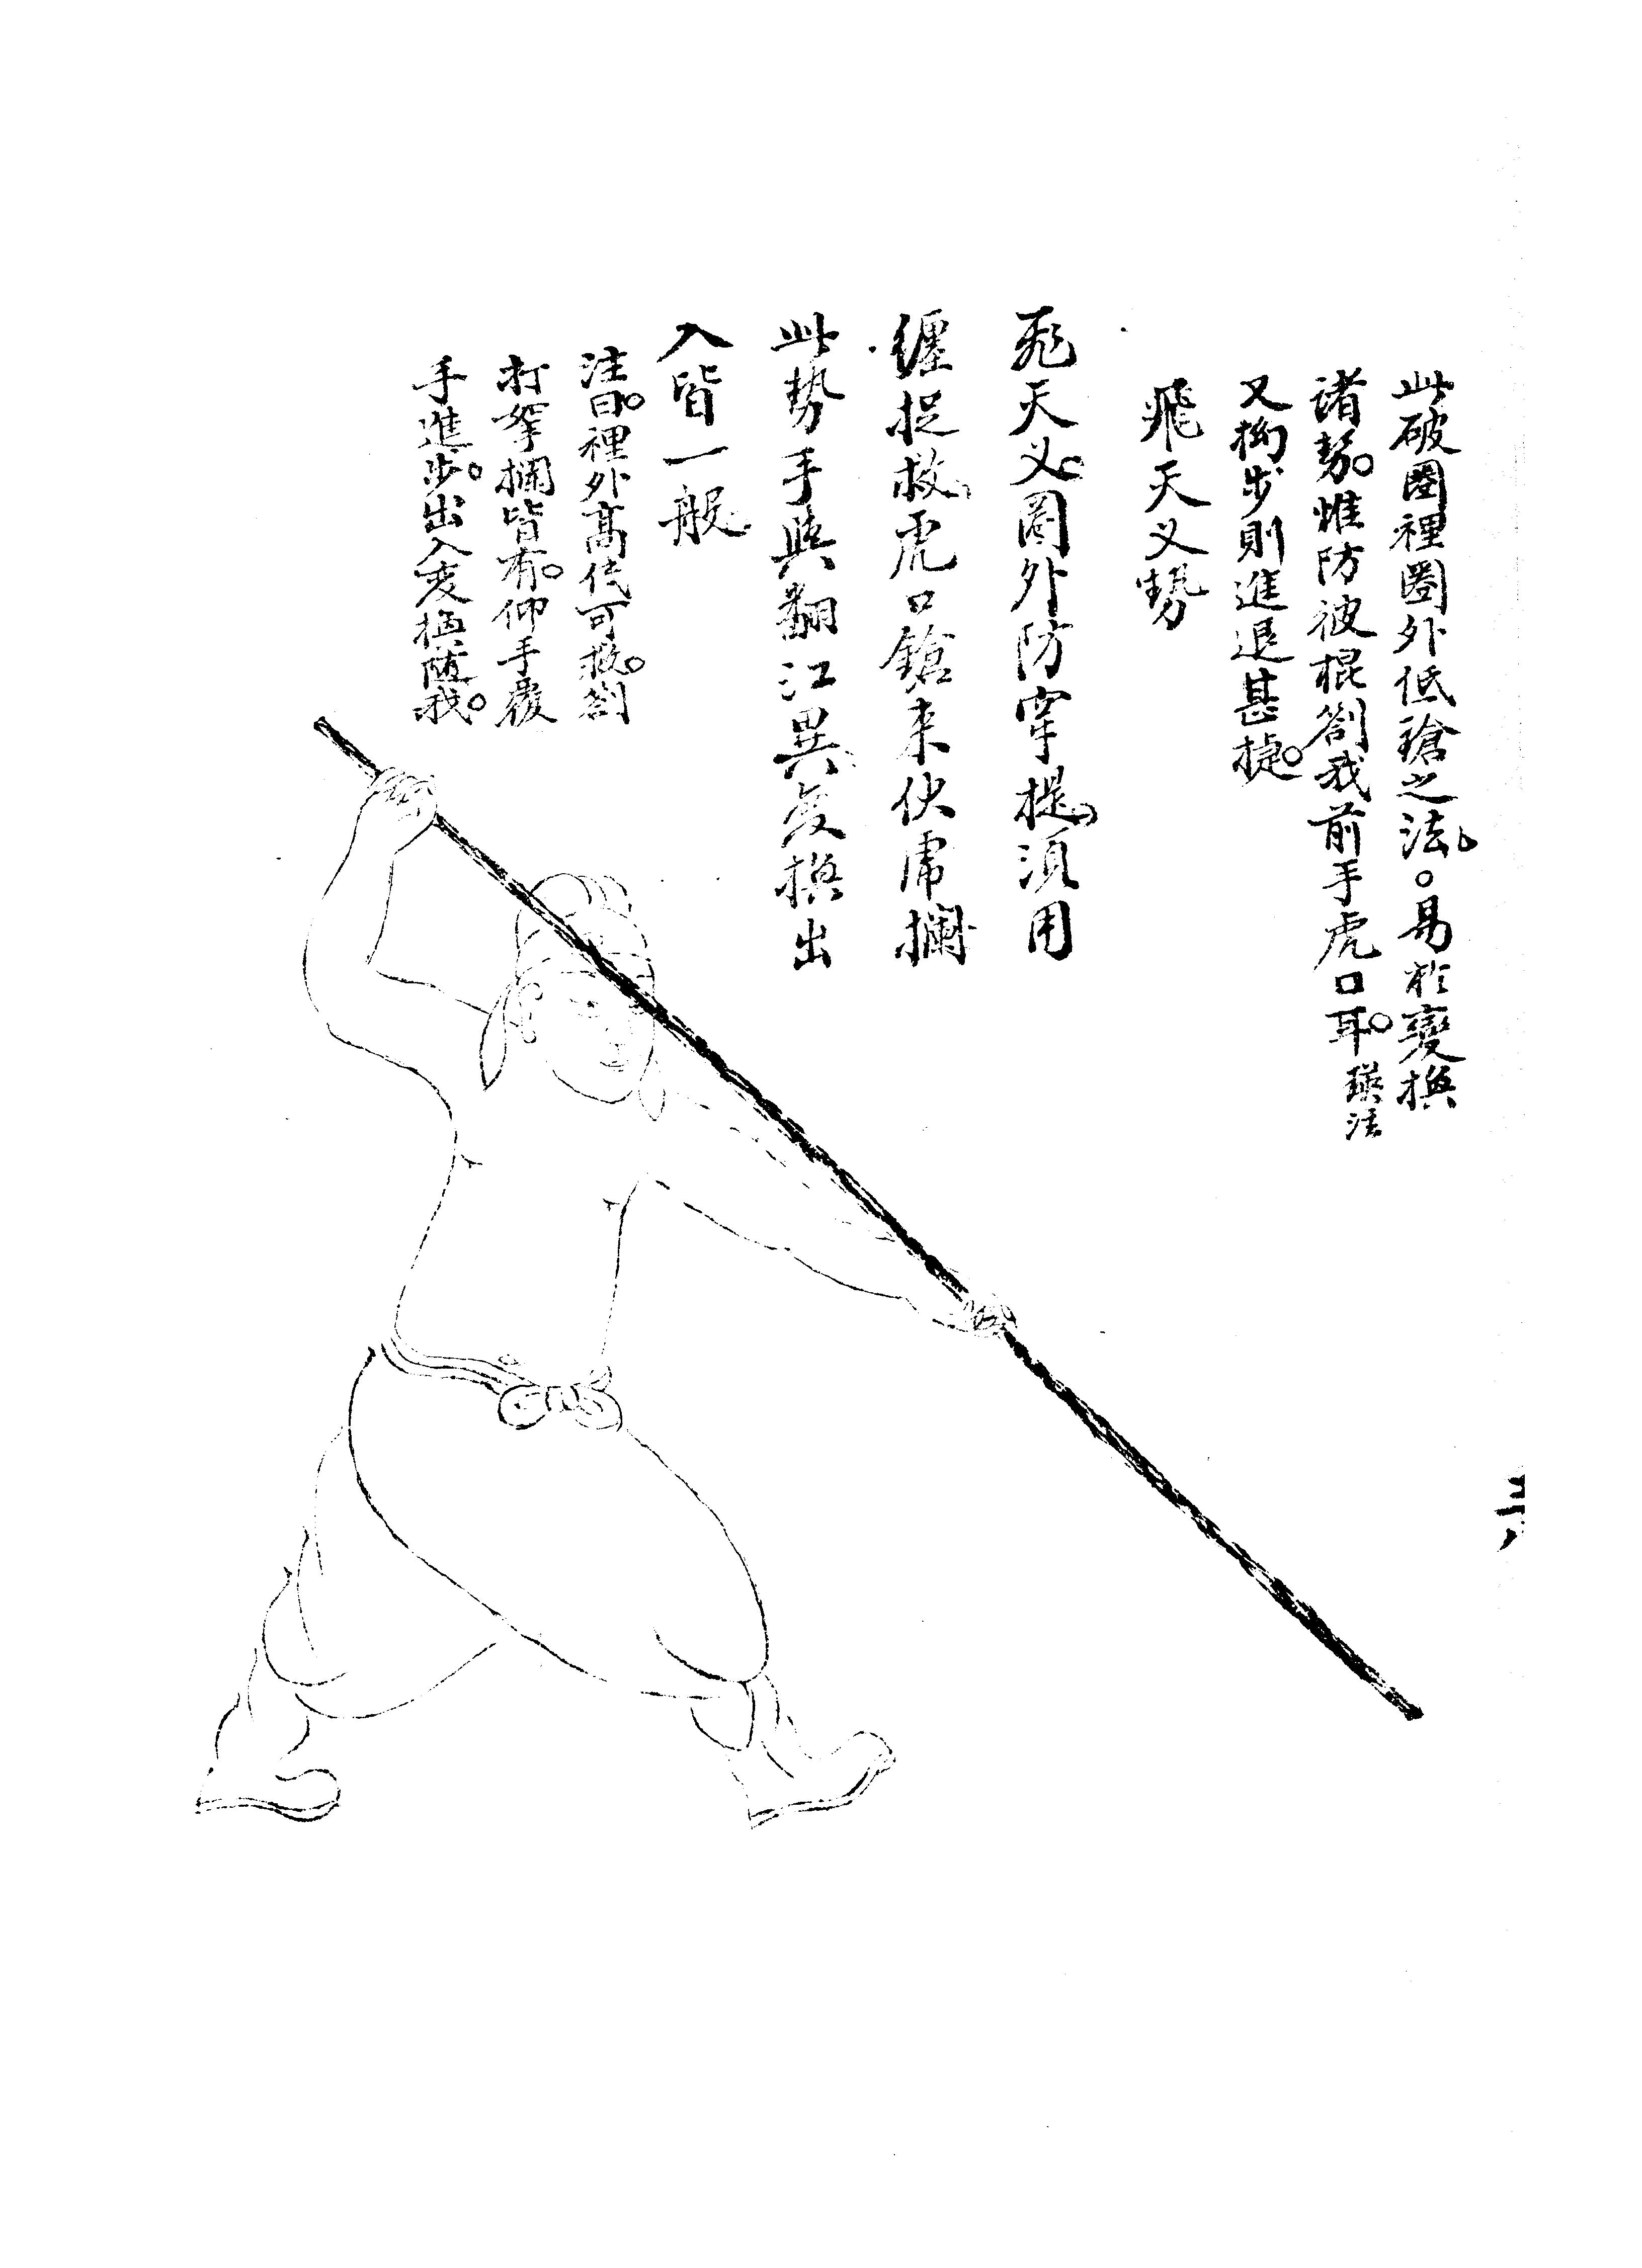 此破圈裡圈外低鎗之法。易於變換
諸勢。惟防彼棍劄我前手虎口耳。瑛法
又拗步則進退甚捷。
飛天叉勢
飛天叉。圈外防穿提須用
纏捉救虎口鎗来伏虎攔
此势手與翻江異变換出
入皆一般
注曰。裡外高低可救。劄
打拏攔皆有。仰手覆
手進步。出入变換随我。